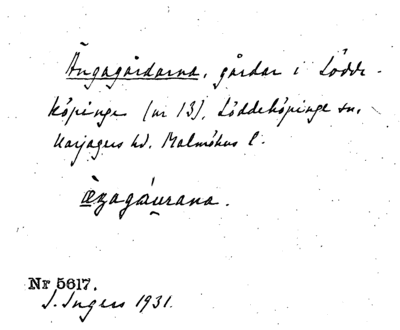 Ängagårdarna, gårdar i Lödde-
köpinge (nr 13), Löddeköpinge sn,
Harjagers hd. Malmöhus l.
Nr 5617.
I. Ingers 1931.